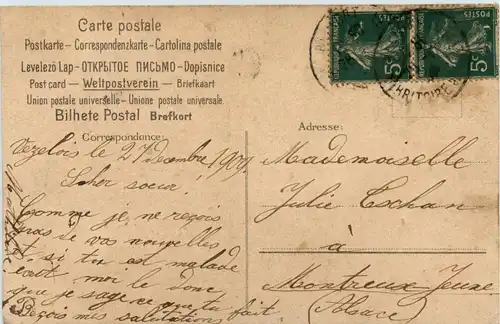 Carte postale
Postkarte – Correspondenzkarte – Cartolina postale
Levelező Lap – ОТКРЫТОЕ ПИСЬМО – Dopisnice
Post card — Weltpostverein — Briefkaart
Union postale universelle – Unione postale universale.
Bilhete Postal Brefkort
Correspondance:
Vezelois le 27 Decembre 1909.
Scher soeur!
Comme je ne reçois
pas de vos nouvelles
et si tu est malade
moi le donc
que je sage ce que tu fait
Reçois mes salutations
Adresse:
Mademoiselle
Julie Tschan
à
Montreux Jeune
(Alsace)
POSTES
5c
POSTES
5c